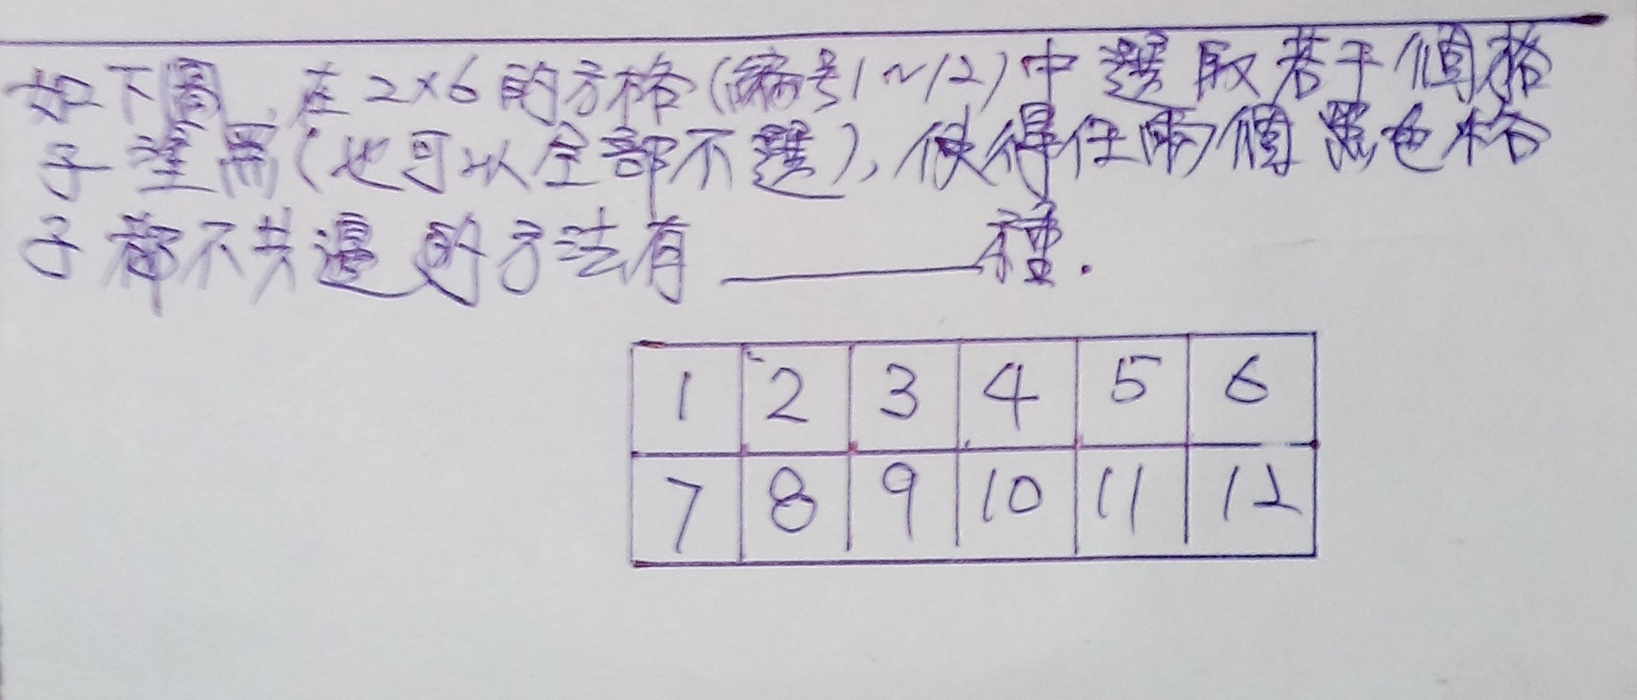 如下圖,在2×6的方格(編号1~12)中選取若干個格
子塗黑(也可以全部不選),使得任兩個黑色格
子都不共邊的方法有______種.
1 2 3 4 5 6
7 8 9 10 11 12